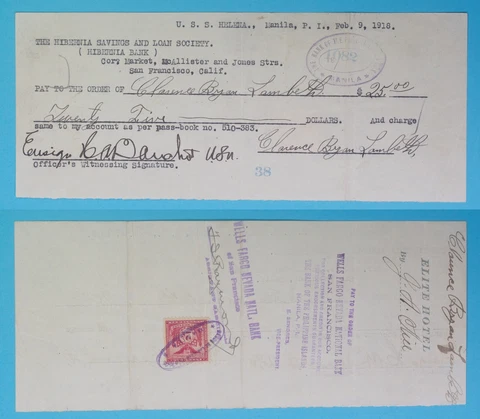 U. S. S. HELENA., Manila, P. I., Feb. 9, 1918.
THE HIBERNIA SAVINGS AND LOAN SOCIETY.
( HIBERNIA BANK )
Cor. Market, McAllister and Jones Strs.
San Francisco, Calif.
1082
MANILA
PAY TO THE ORDER OF Clarence Bryan Lambeth. $25.00
Twenty Five DOLLARS. And charge
same to my account as per pass-book no. 510-383.
Clarence Bryan Lambeth,
Ensign USN.
Officer's Witnessing Signature.
38
WELLS FARGO NEVADA NATL. BANK
of San Francisco
PAY TO THE ORDER OF
WELLS FARGO NEVADA NATIONAL BANK
SAN FRANCISCO,
THE BANK OF THE PHILIPPINE ISLANDS
MANILA
ELITE HOTEL
By
Clarence Bryan Lambeth